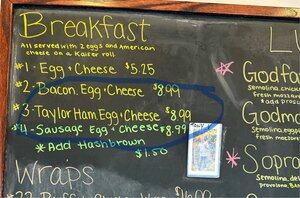 Breakfast
All served with 2 eggs and American
cheese on a Kaiser roll
#1 - Egg + Cheese $5.25
#2 - Bacon, Egg + Cheese $8.99
#3 - Taylor Ham, Egg + Cheese $8.99
#4 - Sausage Egg + Cheese $8.99
*Add Hashbrown
$1.50
Wraps
LU
Godfa
Semolina, chick
fresh mozzar
Godmo
Semolina, eggp
fresh mozza
Sopra
Semolina, del
provolone, Ba